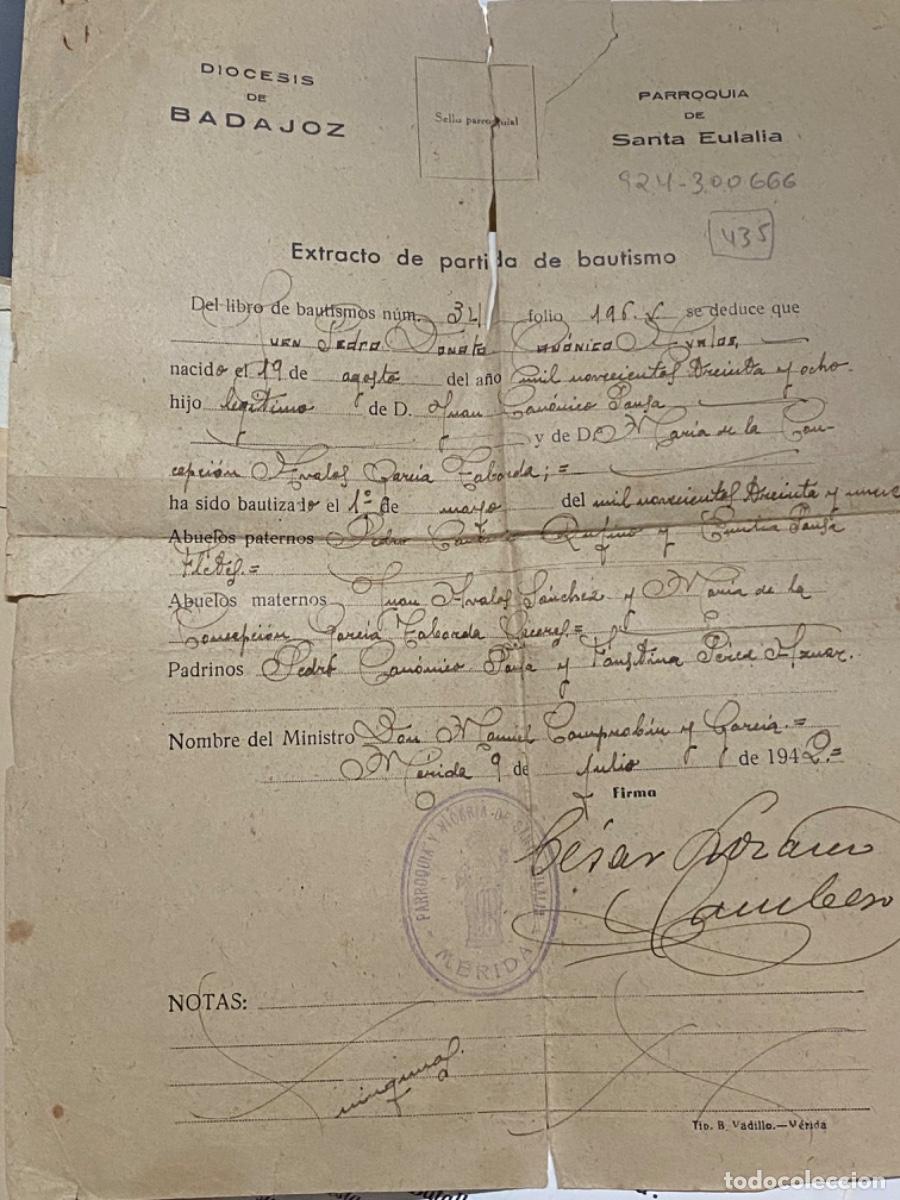 DIOCESIS
DE
BADAJOZ
Sello parroquial
PARROQUIA
DE
Santa Eulalia
924-300666
435
Extracto de partida de bautismo
Del libro de bautismos núm. 34 folio 196. se deduce que
Pedro Donato Canónico Avalos,
nacido el 19 de agosto del año mil novecientos treinta y ocho.
hijo legítimo de D. Juan Canónico Pansa
y de D. María de la Con-
cepción Avalos García Taborda; =
ha sido bautizado el 1º de mayo del mil novecientos treinta y nueve
Abuelos paternos Pedro Rufino y
=
Abuelos maternos Juan Avalos Sánchez y María de la
Concepción García Taborda =
Padrinos Pedro Canónico y Faustina Pérez Aznar.
Nombre del Ministro Don Manuel Comprobín y García. =
Mérida 9 de julio de 1942. =
Firma
César Lozano
Cambero
PARROQUIA Y DE EULALIA
MERIDA
NOTAS:
ninguna.
Tip. B. Vadillo.—Mérida
todocoleccion